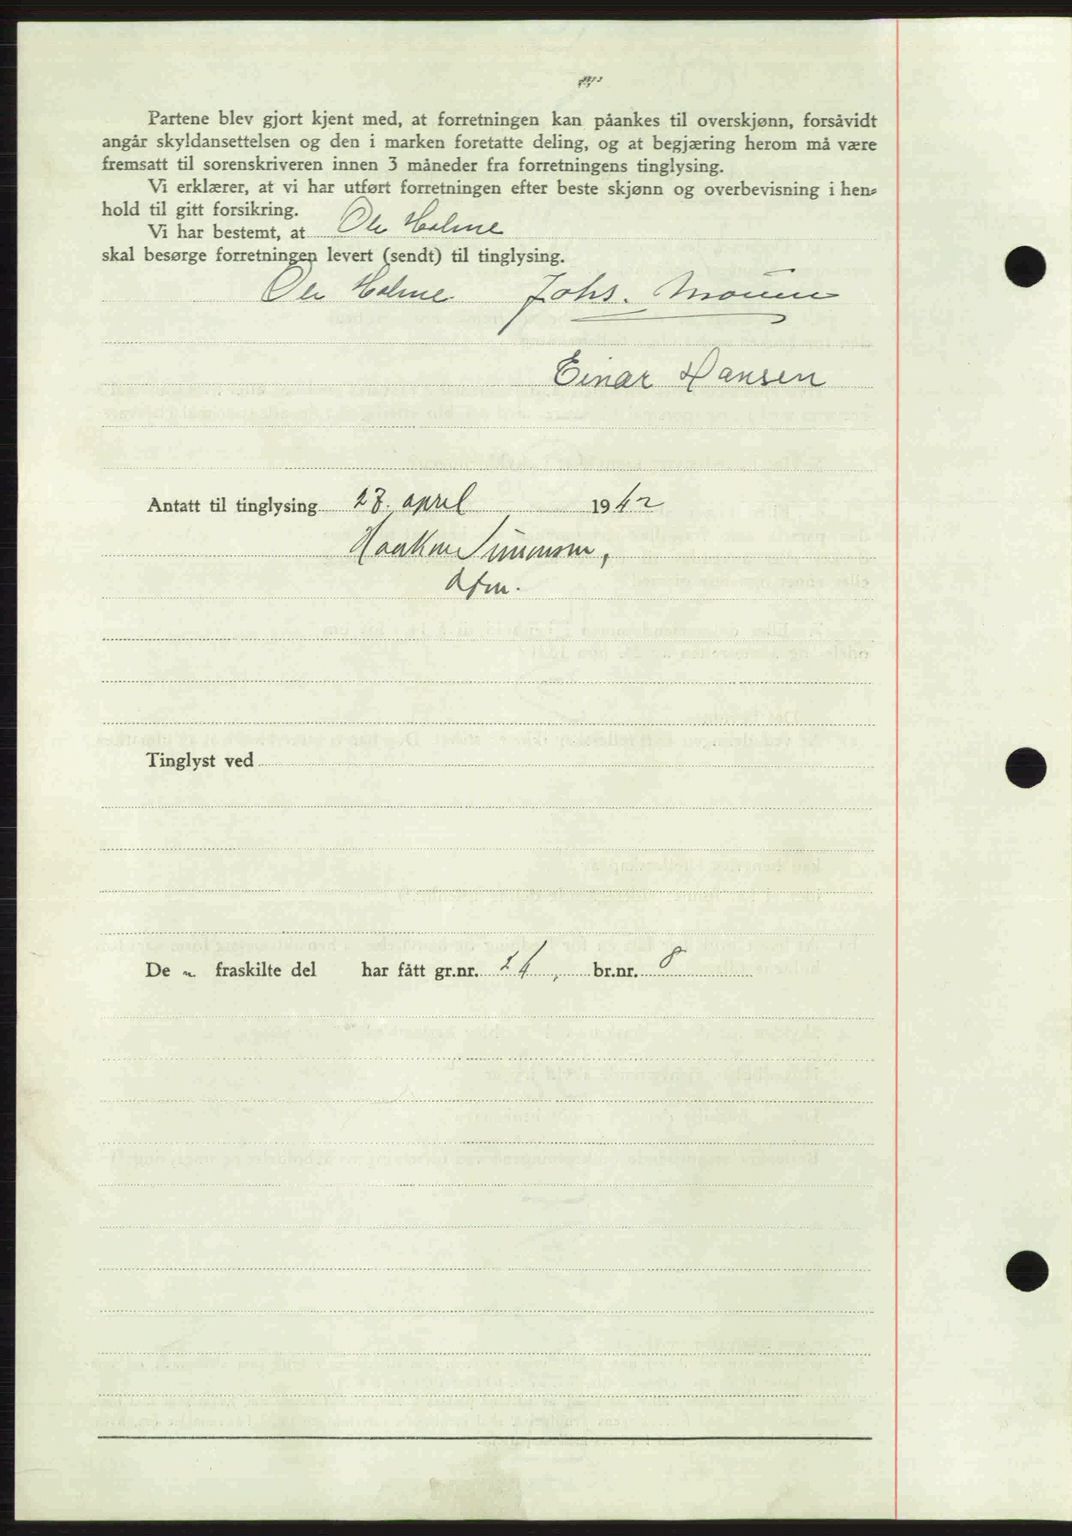 Partene blev gjort kjent med, at forretningen kan påankes til overskjønn, forsåvidt
angår skyldansettelsen og den i marken foretatte deling, og at begjæring herom må være
fremsatt til sorenskriveren innen 3 måneder fra forretningens tinglysing.
Vi erklærer, at vi har utført forretningen efter beste skjønn og overbevisning i hen-
hold til gitt forsikring.
Vi har bestemt, at Ole Holme
skal besørge forretningen levert (sendt) til tinglysing.
Ole Holme Johs.
Einar Hansen
Antatt til tinglysing 27. april 1942
Haakon Simonsen,
De n fraskilte del har fått gr.nr. br.nr. 8
Tinglyst ved